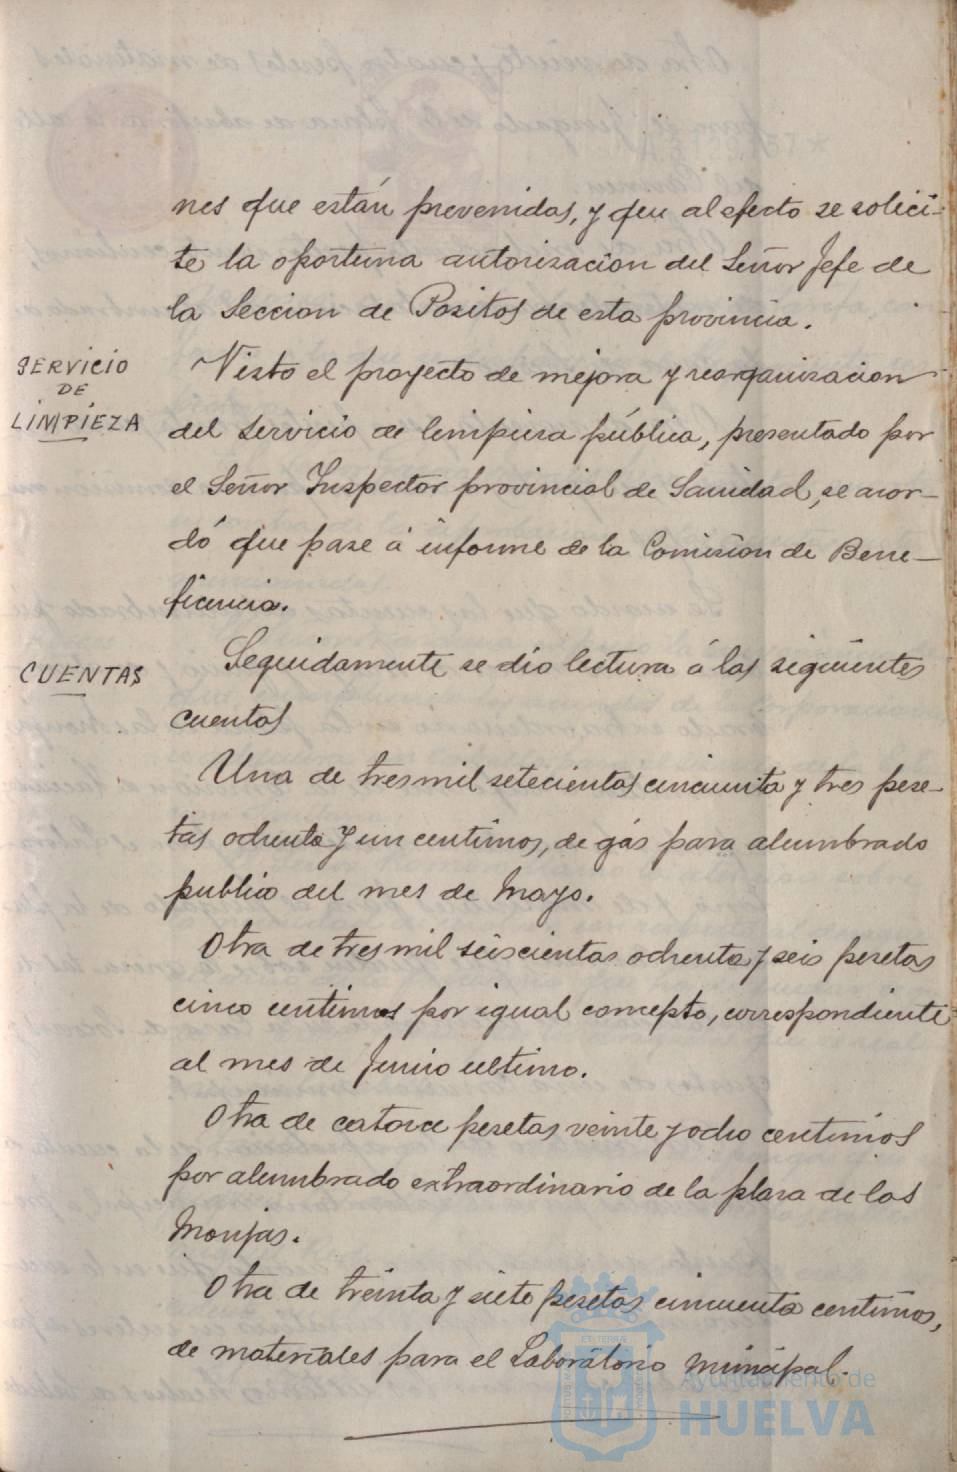 nes que están prevenidas, y que al efecto se solici-
te la oportuna autorizacion del Señor Jefe de
la Seccion de Pósitos de esta provincia.
SERVICIO
DE
LIMPIEZA
Visto el proyecto de mejora y reorganizacion
del servicio de limpieza pública, presentado por
el Señor Inspector provincial de Sanidad, se acor-
dó que pase á informe de la Comision de Bene-
ficencia.
CUENTAS
Seguidamente se dió lectura á las siguientes
cuentas
Una de tres mil setecientas cincuenta y tres pese-
tas ochenta y un centimos, de gás para alumbrado
publico del mes de Mayo.
Otra de tres mil seiscientas ochenta y seis pesetas
cinco centimos por igual concepto, correspondiente
al mes de Junio ultimo.
Otra de catorce pesetas veinte y ocho centimos
por alumbrado extraordinario de la plaza de las
Monjas.
Otra de treinta y siete pesetas cincuenta centimos,
de materiales para el Laboratorio municipal.
Ayuntamiento de
HUELVA